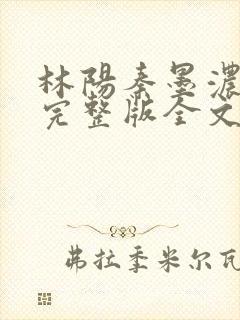 林陽秦墨濃
完整版全文
弗拉季米尔瓦